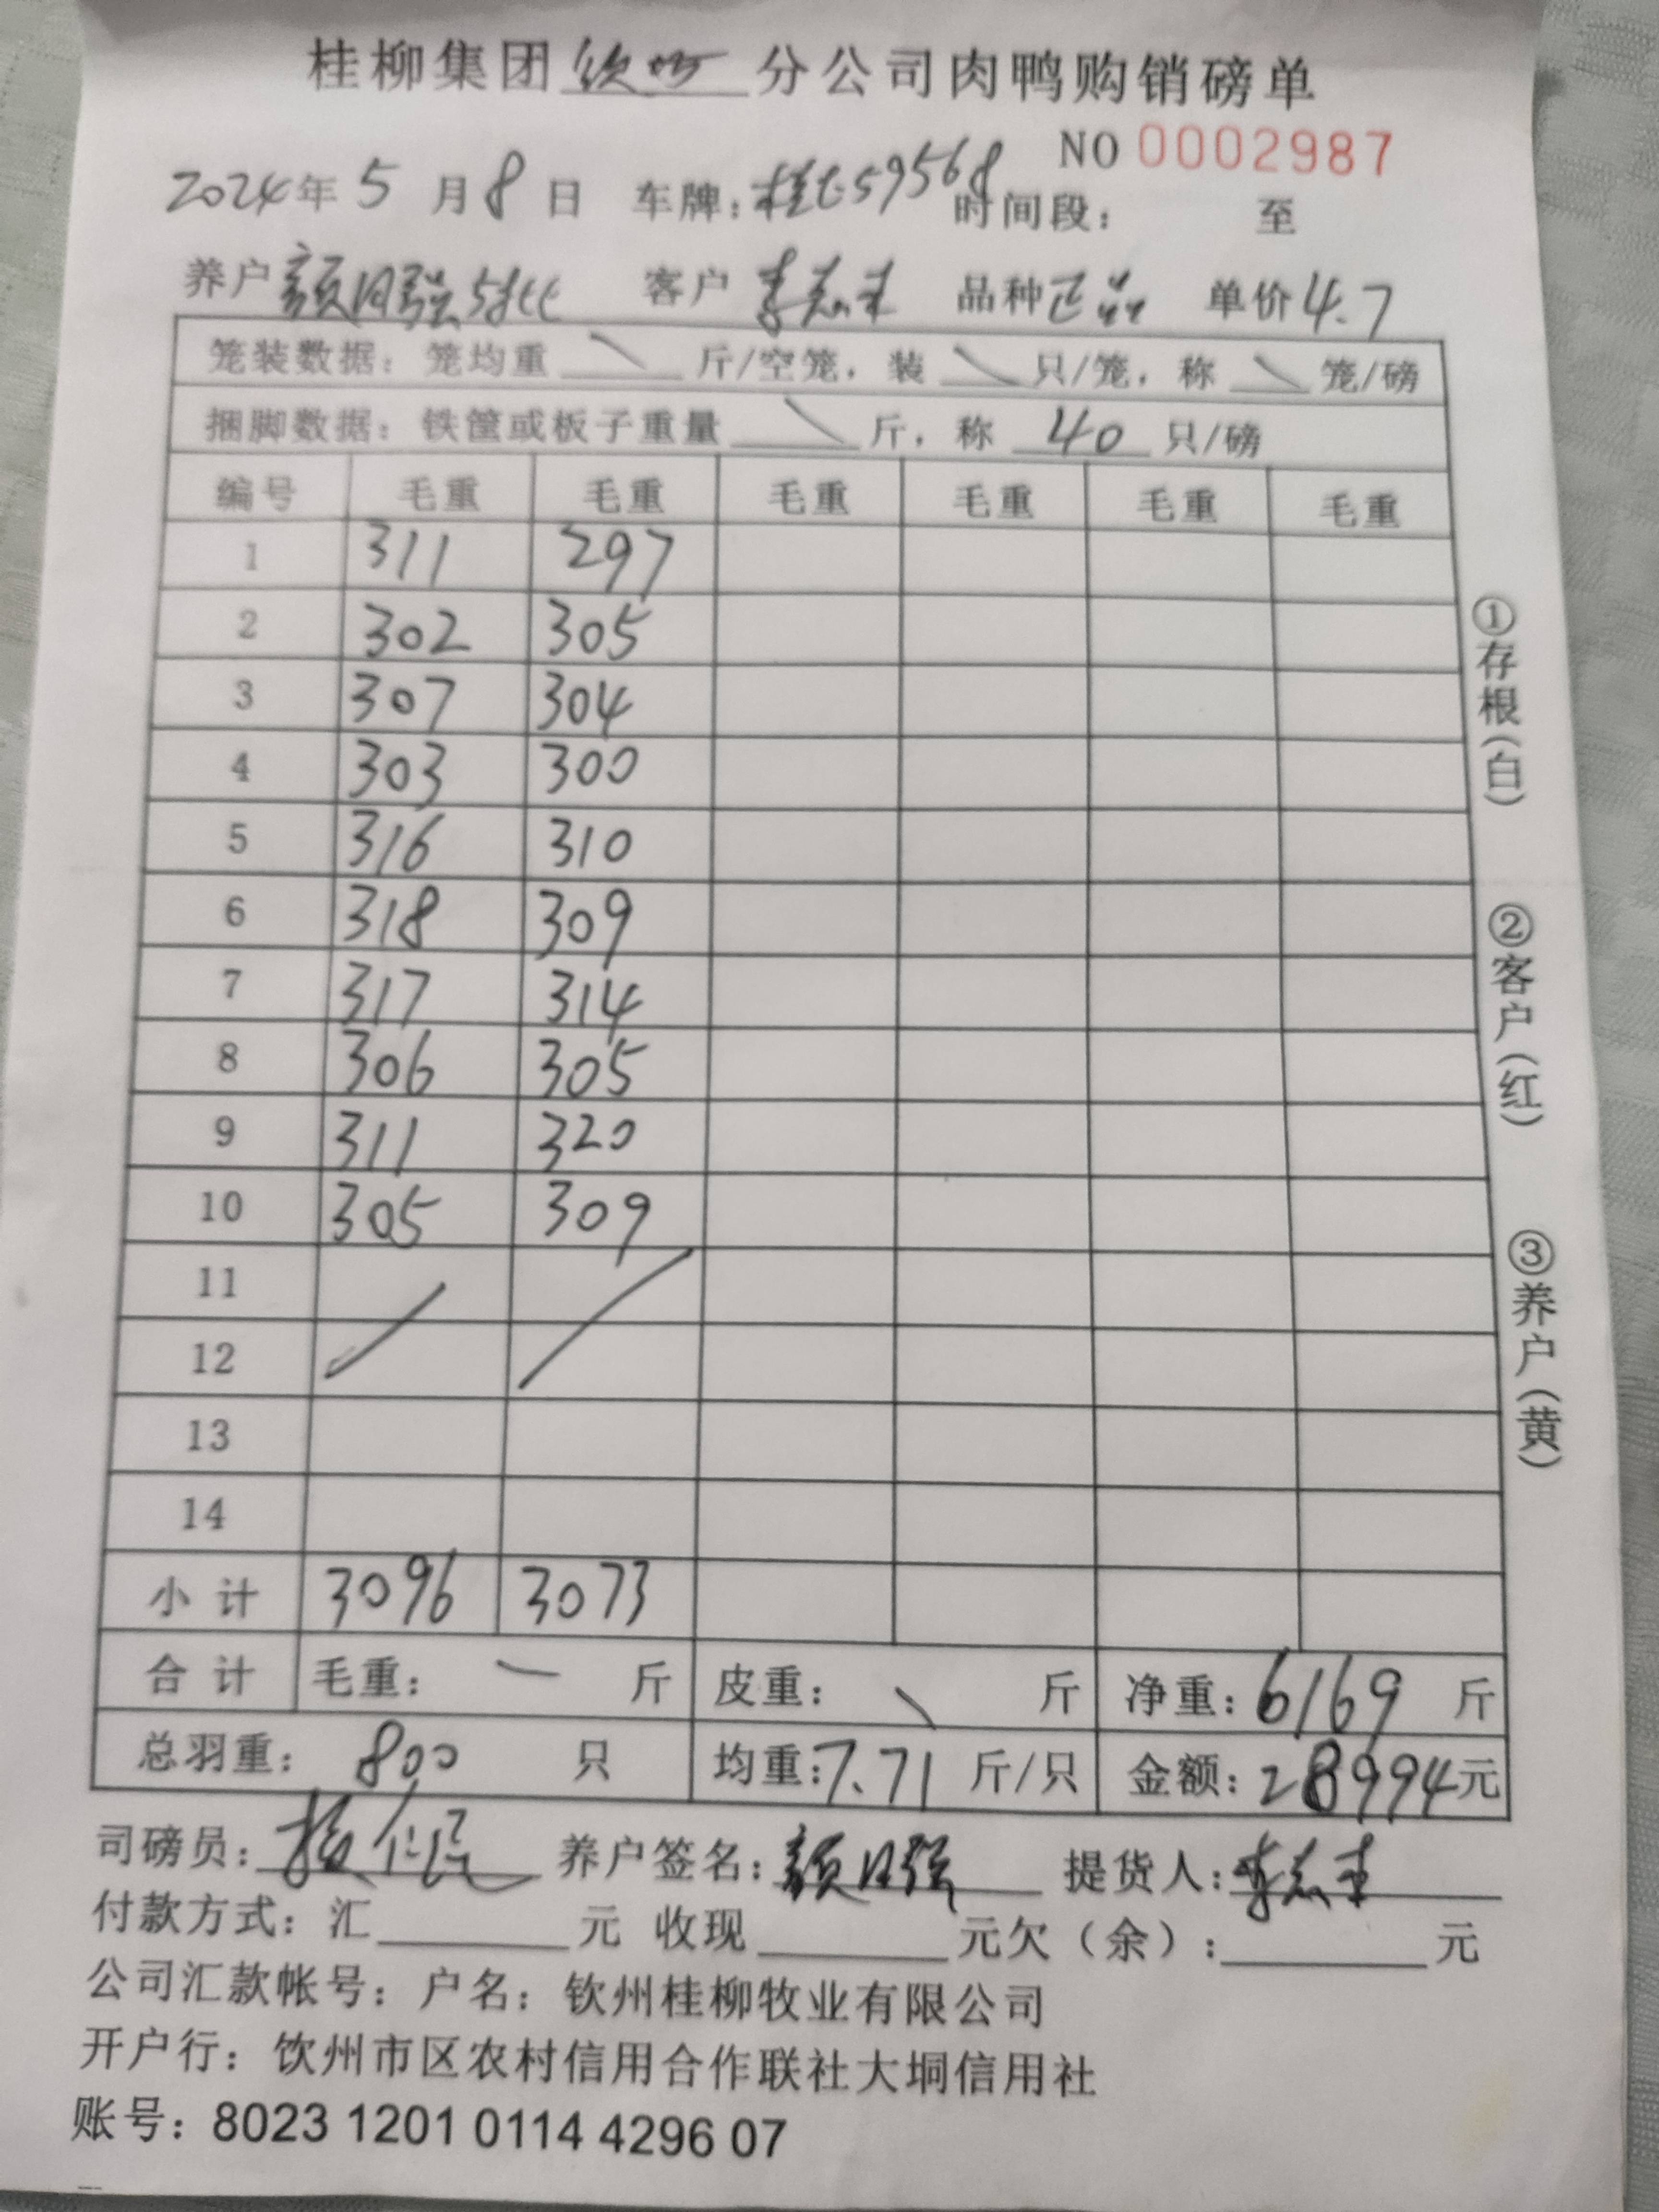 桂柳集团钦州分公司肉鸭购销磅单
NO 0002987
2024年 5 月 8 日 车牌: 59568 时间段: 至
养户 颜日强5批 客户 李志丰 品种 正品 单价 4.7
笼装数据: 笼均重 \ 斤/空笼, 装 \ 只/笼, 称 \ 笼/磅
捆脚数据: 铁筐或板子重量 \ 斤, 称 40 只/磅
编号 毛重 毛重 毛重 毛重 毛重 毛重
1 311 297
2 302 305
3 307 304
4 303 300
5 316 310
6 318 309
7 317 314
8 306 305
9 311 320
10 305 309
11
12
13
14
小计 3096 3073
合计 毛重: — 斤 皮重: \ 斤 净重: 6169 斤
总羽重: 800 只 均重: 7.71 斤/只 金额: 28994元
司磅员: 养户签名: 颜日强 提货人: 李志丰
付款方式: 汇 元 收现 元欠(余): 元
公司汇款帐号: 户名: 钦州桂柳牧业有限公司
开户行: 饮州市区农村信用合作联社大垌信用社
账号: 8023 1201 0114 4296 07
①存根(白)
②客户(红)
③养户(黄)